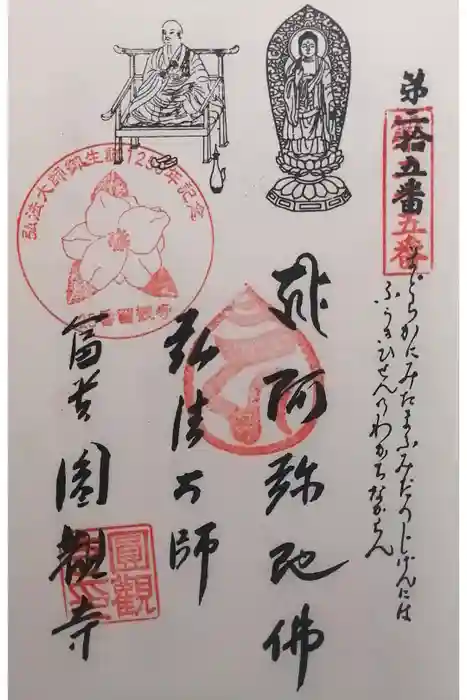 第二拾五番
五番
まどらかにみたまふみだのじげんには
ふうきひせんのわかちなからん
阿弥陀佛
弘法大師
弘法大師御生誕1250年記念
富吉 圓觀寺
圓觀